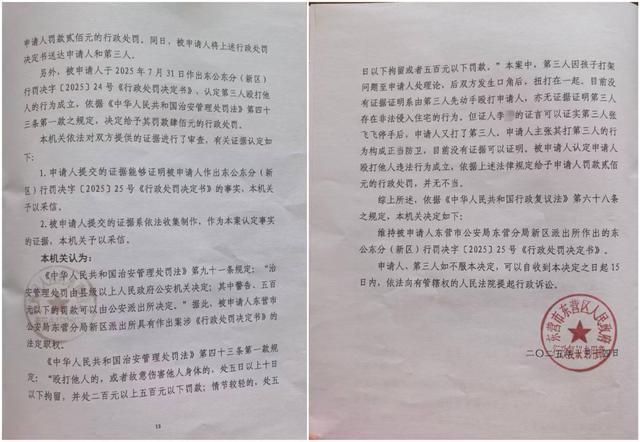 申请人罚款贰佰元的行政处罚。同日，被申请人将上述行政处罚
决定书送达申请人和第三人。
另外，被申请人于2025年7月31日作出东公东分（新区）
行罚决字〔2025〕24号《行政处罚决定书》，认定第三人殴打他
人的行为成立，依据《中华人民共和国治安管理处罚法》第四十
三条第一款之规定，决定给予其罚款肆佰元的行政处罚。
本机关依法对双方提供的证据进行了审查，有关证据认定如
下：
1.申请人提交的证据能够证明被申请人作出东公东分（新
区）行罚决字〔2025〕25号《行政处罚决定书》的事实，本机关
予以采信。
2.被申请人提交的证据系依法收集制作，作为本案认定事实
的证据，本机关予以采信。
本机关认为：
《中华人民共和国治安管理处罚法》第九十一条规定：“治
安管理处罚由县级以上人民政府公安机关决定；其中警告、五百
元以下的罚款可以由公安派出所决定。”据此，被申请人东营市
公安局东营分局新区派出所具有作出案涉《行政处罚决定书》的
法定职权。
《中华人民共和国治安管理处罚法》第四十三条第一款规
定：“殴打他人的，或者故意伤害他人身体的，处五日以上十日
以下拘留，并处二百元以上五百元以下罚款；情节较轻的，处五
13
日以下拘留或者五百元以下罚款。”本案中，第三人因孩子打架
问题至申请人处理论，后双方发生口角后，扭打在一起。目前没
有证据证明系由第三人先动手殴打申请人，亦无证据证明第三人
存在非法侵入住宅的行为。但证人李 的证言可以证实第三人张
飞飞停手后，申请人又打了第三人。申请人主张其打第三人的行
为构成正当防卫，目前没有证据可以证明。被申请人认定申请人
殴打他人违法行为成立，依据上述法律规定给予申请人罚款贰佰
元的行政处罚，并无不当。
综上所述，依据《中华人民共和国行政复议法》第六十八条
之规定，本机关决定如下：
维持被申请人东营市公安局东营分局新区派出所作出的东
公东分（新区）行罚决字〔2025〕25号《行政处罚决定书》。
申请人、第三人如不服本决定，可以自收到本决定之日起15
日内，依法向有管辖权的人民法院提起行政诉讼。
东营市东营区人民政府
二〇二五年 月 四日